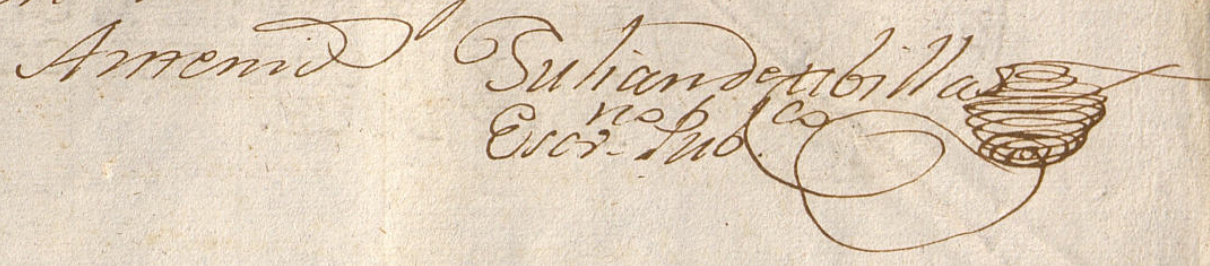 Ante mi
Julian de Ubillas
Escr.no Pub.co